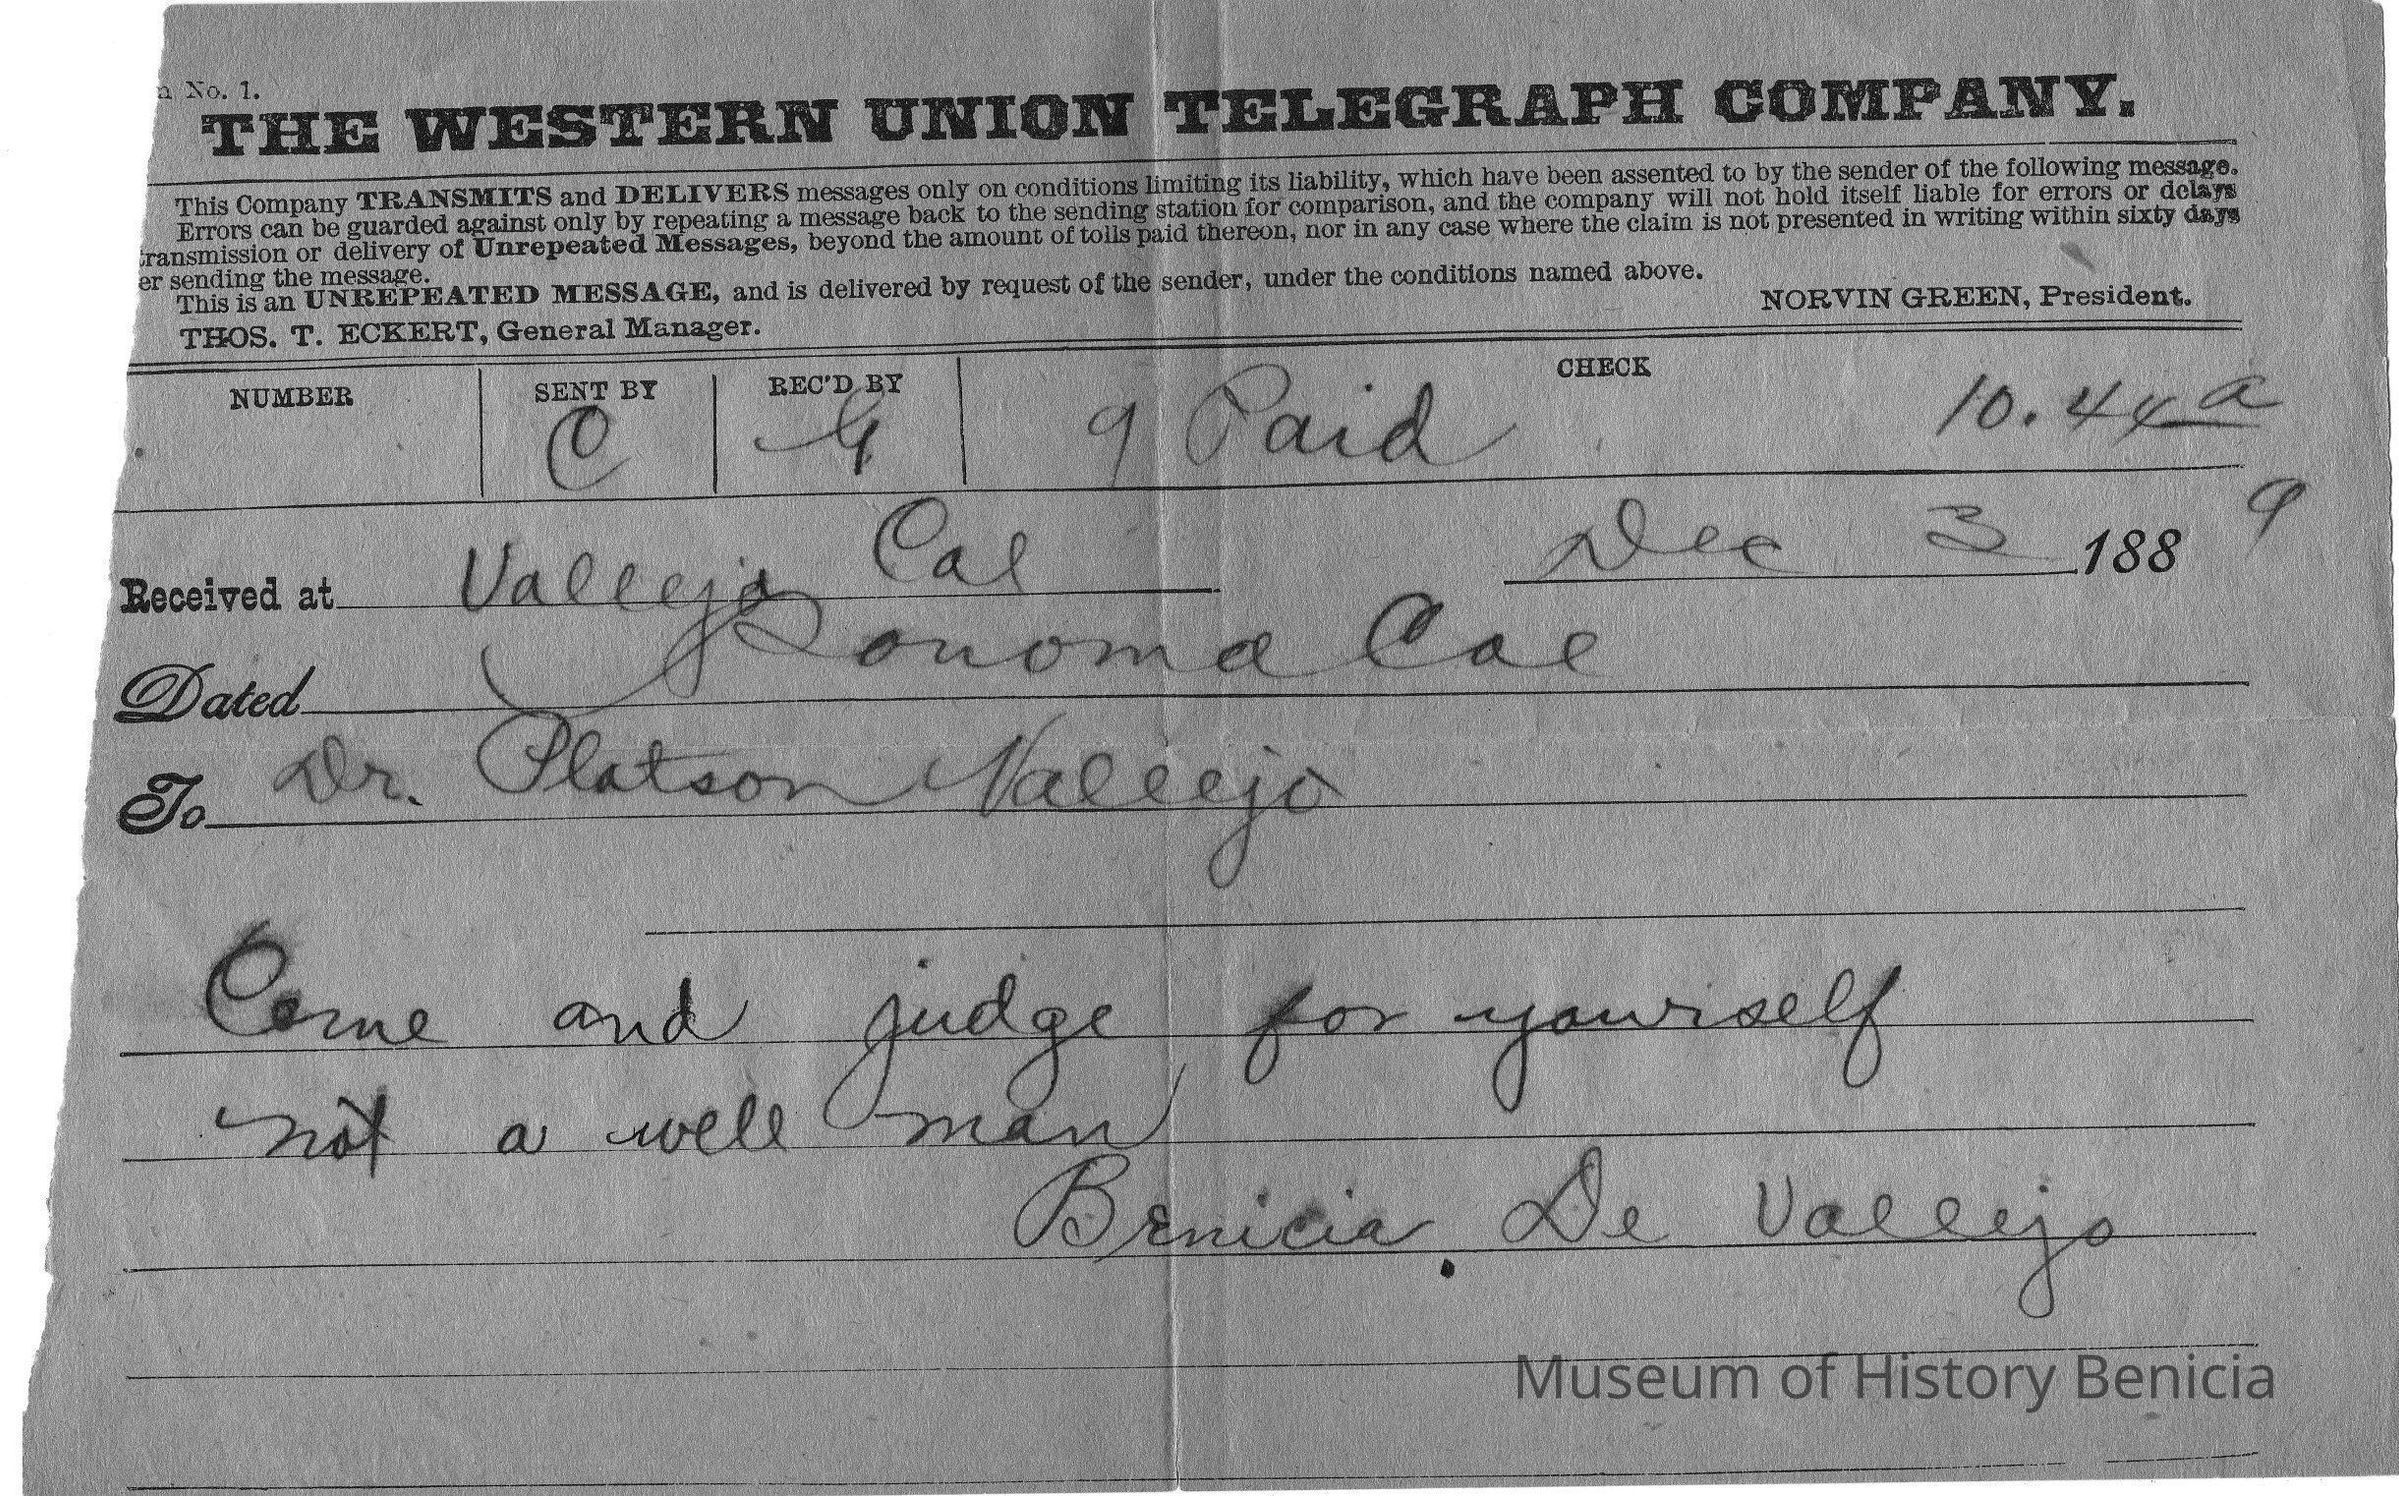 No. 1.
THE WESTERN UNION TELEGRAPH COMPANY.
This Company TRANSMITS and DELIVERS messages only on conditions limiting its liability, which have been assented to by the sender of the following message.
Errors can be guarded against only by repeating a message back to the sending station for comparison, and the company will not hold itself liable for errors or delays
transmission or delivery of Unrepeated Messages, beyond the amount of tolls paid thereon, nor in any case where the claim is not presented in writing within sixty days
er sending the message.
This is an UNREPEATED MESSAGE, and is delivered by request of the sender, under the conditions named above.
THOS. T. ECKERT, General Manager. NORVIN GREEN, President.
NUMBER SENT BY REC'D BY CHECK
C G 9 Paid 10.44 a
Received at Vallejo Cal Dec 3 1889
Dated Sonoma Cal
To Dr. Platson Vallejo
Come and judge for yourself
not a well man
Benicia. De Vallejo
Museum of History Benicia